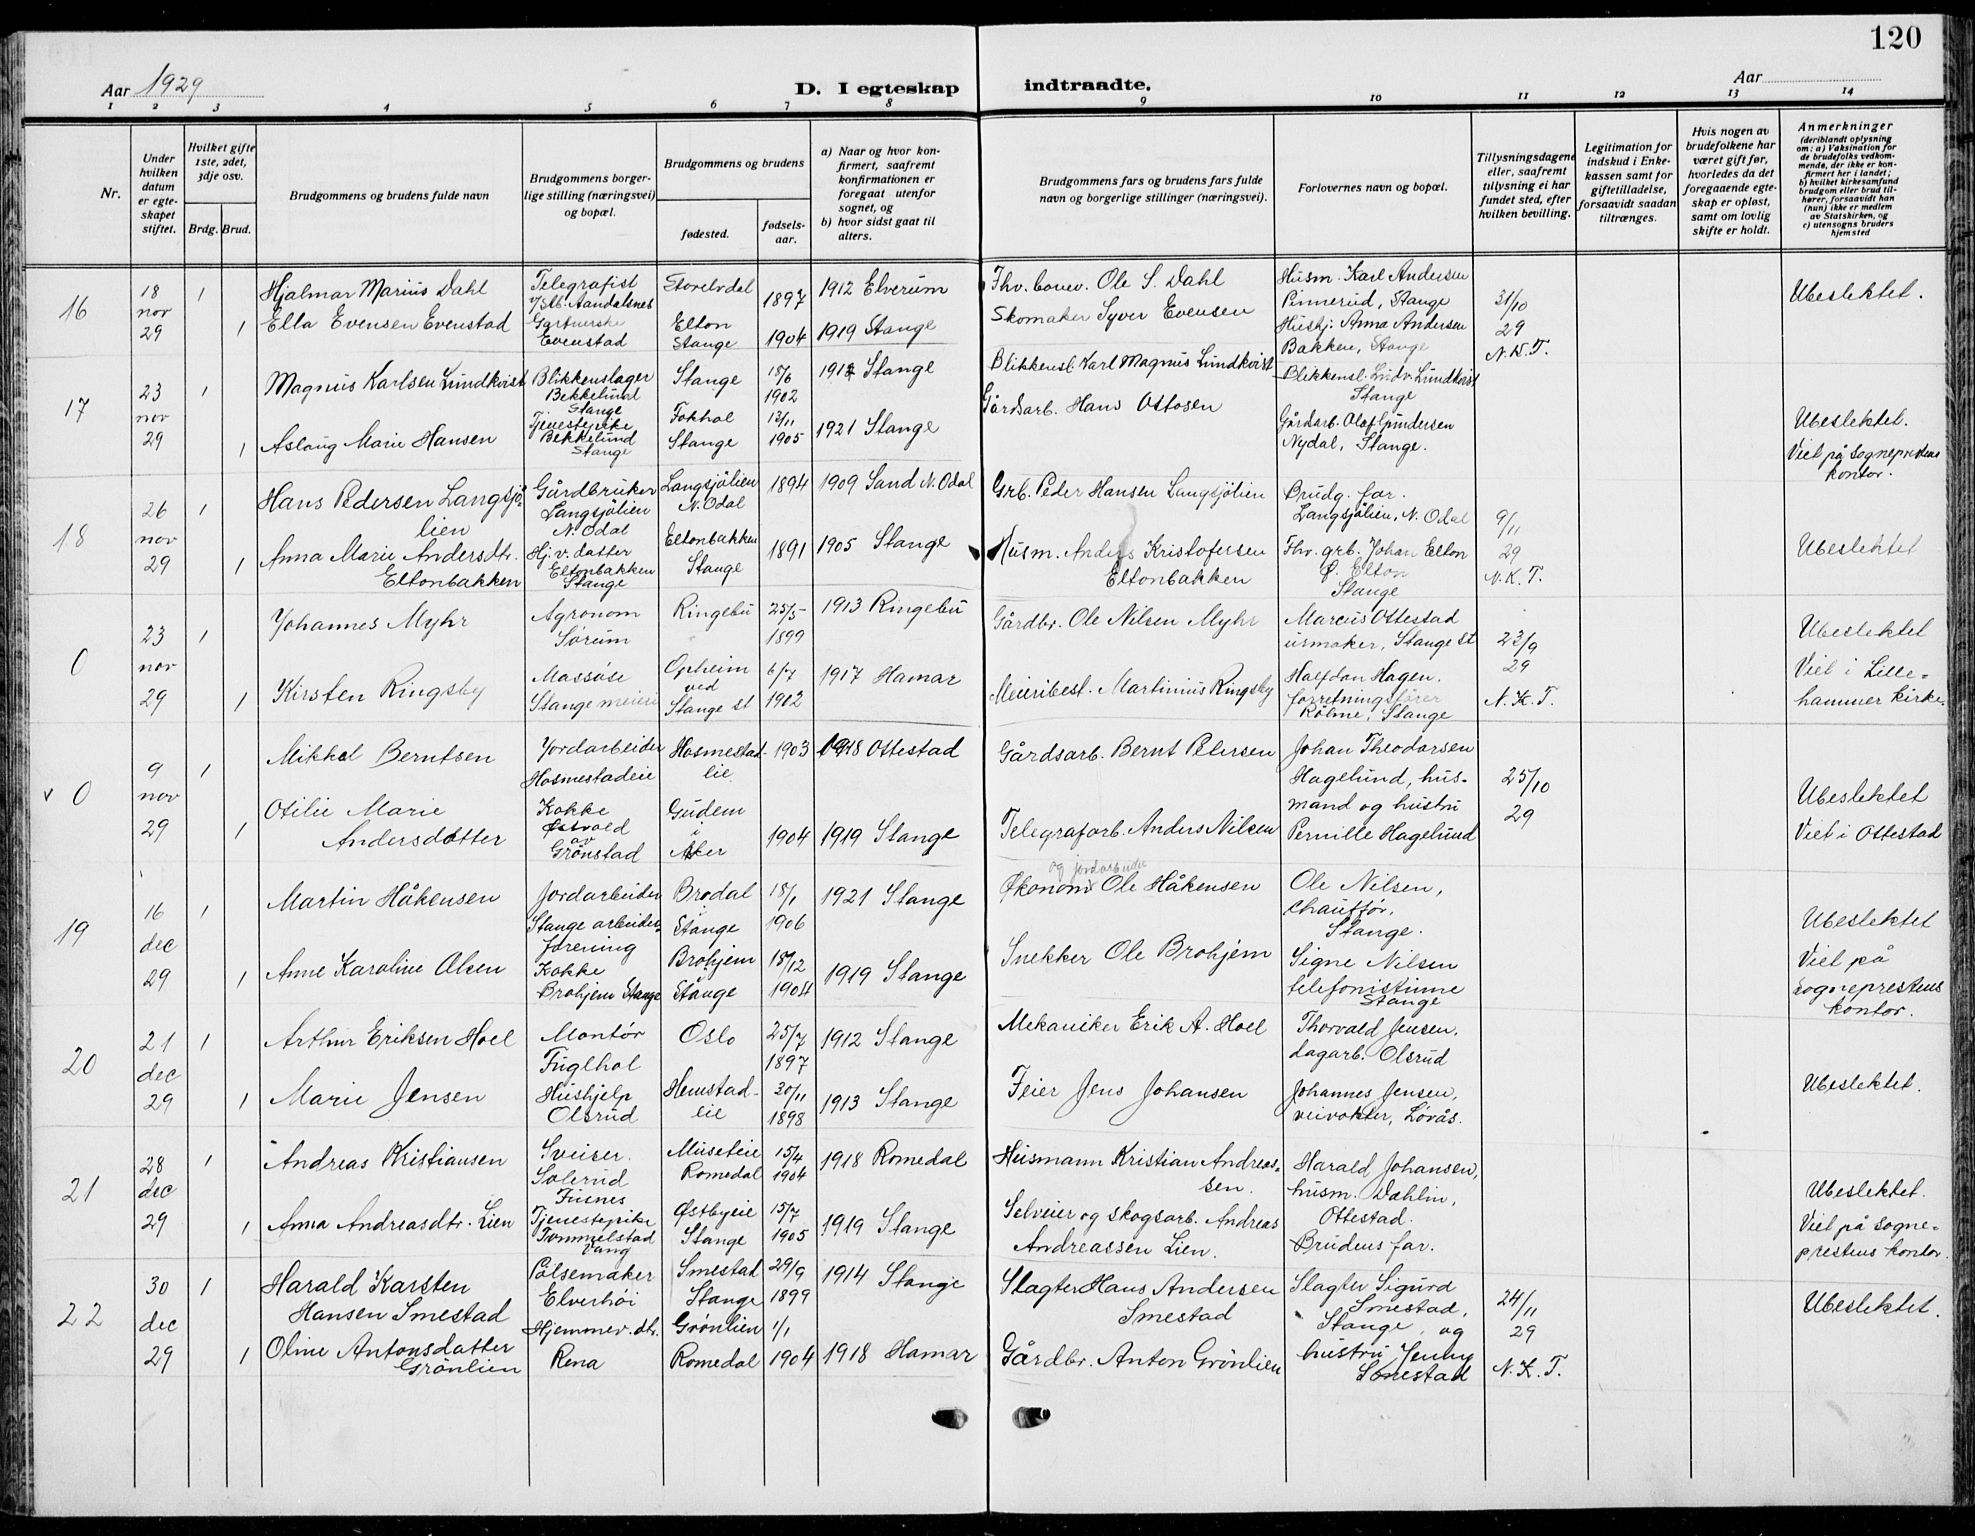 120
Aar 1929
D. I egteskap indtraadte.
Aar
1 2 3 4 5 6 7 8 9 10 11 12 13 14
Nr.
Under hvilken datum er egteskapet stiftet.
Hvilket gifte 1ste, 2det, 3dje osv.
Brdg. Brud.
Brudgommens og brudens fulde navn
Brudgommens borgerlige stilling (næringsvei) og bopæl.
Brudgommens og brudens
fødested.
fødselsaar.
a) Naar og hvor konfirmert, saafremt konfirmationen er foregaat utenfor sognet, og
b) hvor sidst gaat til alters.
Brudgommens fars og brudens fars fulde navn og borgerlige stillinger (næringsvei).
Forlovernes navn og bopæl.
Tillysningsdagene eller, saafremt tillysning ei har fundet sted, efter hvilken bevilling.
Legitimation for indskud i Enkekassen samt for giftetilladelse, forsaavidt saadan tiltrænges.
Hvis nogen av brudefolkene har været gift før, hvorledes da det foregaaende egteskap er opløst, samt om lovlig skifte er holdt.
Anmerkninger
(deriblandt oplysning om: a) Vaksination for de brudefolks vedkommende, der ikke er konfirmert her i landet; b) hvilket kirkesamfund brudgom eller brud tilhører, forsaavidt han (hun) ikke er medlem av Statskirken, og c) utensogns bruders hjemsted
16
18 nov 29
1
Hjalmar Marius Dahl
Telegrafist
Aandalsnes
Storelvdal
1897
1912 Elverum
Fhv. Ole S. Dahl
Husm. Karl Andersen
Pinnerud, Stange
31/10 29
N.K.T.
Ubeslektet.
1
Ella Evensen Evenstad
Gartnerske
Evenstad
Elton
Stange
1904
1919 Stange
Skomaker Syver Evensen
Hushj. Anna Andersen
Bakken, Stange
17
23 nov 29
1
Magnus Karlsen Lundkvist
Blikkenslager
Bekkelund
Stange
Stange
18/6
1902
1917 Stange
Blikkensl. Karl Magnus Lundkvist
Blikkensl. Ludv. Lundkvist
Stange
1
Aslaug Marie Hansen
Tjenestepike
Bekkelund
Stange
Fokhol
Stange
12/11
1905
1921 Stange
Gårdsarb. Hans Ottosen
Gårdarb. Olaf Gundersen
Nydal, Stange.
Ubeslektet.
Viet på sogneprestens
kontor.
18
26 nov 29
1
Hans Pedersen Langsjø-
lien
Gårdbruker
Langsjølien
N. Odal
Langsjølien
N. Odal
1894
1909 Sand N. Odal
Grb. Peder Hansen Langsjølien
Brudg. far.
Langsjølien, N. Odal
9/11 29
N.K.T.
Ubeslektet
1
Anna Marie Andersdtr.
Eltonbakken
Hj. v. datter
Eltonbakken
Stange
Eltonbakken
Stange
1891
1905 Stange
Husm. Anders Kristofersen
Eltonbakken
Fhv. grb. Johan Elton
Ø. Elton
Stange
0
23 nov 29
1
Johannes Myhr
Agronom
Sørum
Ringebu
25/5
1899
1913 Ringebu
Gårdbr. Ole Nilsen Myhr
Marcus Ottestad
urmaker, Stange st
23/9
29
N.K.T.
Ubeslektet
Viet i Lille-
hammer kirke.
1
Kirsten Ringsby
Massøse
Stange meieri
Opheim
ved
Stange st
6/7
1902
1917 Hamar
Meieribest. Martinius Ringsby
Halfdan Hagen.
forretningsfører
Kolme, Stange
v 0
9 nov 29
1
Mikkel Berntsen
Jordarbeider
Hosmestadeie
Hosmestad-
eie
1903
1918 Ottestad
Gårdsarb. Bernt Petersen
Johan Theodorsen
Hagelund, hus-
mand og hustru
Pernille Hagelund
25/10
29
Ubeslektet
Viet i Ottestad
1
Otilie Marie
Andersdatter
Kokke
Østvold
av
Grønstad
Gudem
i
Aker
1904
1919 Stange
Telegrafarb. Anders Nilsen
19
16 dec 29
1
Martin Håkensen
Jordarbeider
Stange arbeider-
forening
Brodal
Stange
18/1
1906
1921 Stange
og jordarbeider
Økonom Ole Håkensen
Ole Nilsen,
chauffør,
Stange.
Ubeslektet
Viet på
sogneprestens
kontor.
1
Anne Karoline Olsen
Kokke
Brohjem Stange
Brohjem
Stange
15/12
1904
1919 Stange
Snekker Ole Brohjem
Signe Nilsen
telefonistinne
Stange
20
21 dec 29
1
Arthur Eriksen Hoel
Montør
Fuglhol
Oslo
25/7
1897
1912 Stange
Mekaniker Erik A. Hoel
Thorvald Jensen,
dagarb. Olsrud
Ubeslektet.
1
Marie Jensen
Hushjelp
Olsrud
Hemstad-
eie
20/11
1898
1913 Stange
Feier Jens Johansen
Johannes Jensen,
veivokter, Løvås.
21
28 dec 29
1
Andreas Kristiansen
Sveiser.
Solerud
Furnes
Museteie
Romedal
15/4
1904
1918 Romedal
Husmann Kristian Andreas-
sen.
Harald Johansen,
husm. Dahlin,
Ottestad.
Ubeslektet.
Viet på sogne-
prestens kontor.
1
Anna Andreasdtr. Lien
Tjenestepike
Tommelstad
Vang
Østbyeie
Stange
15/7
1905
1919 Stange
Selveier og skogsarb. Andreas
Andreassen Lien.
Brudens far.
22
30 dec 29
1
Harald Karsten
Hansen Smestad
Pølsemaker
Elverhøi
Smestad
Stange
29/9
1899
1914 Stange
Slagter Hans Andersen
Smestad
Slagter Sigurd
Smestad,
Stange, og
hustru Jenny
Smestad
24/11
29
N.K.T.
Ubeslektet.
1
Oline Antonsdatter
Grønlien
Hjemmev. dtr.
Rena
Grønlien
Romedal
1/1
1904
1918 Hamar
Gårdbr. Anton Grønlien